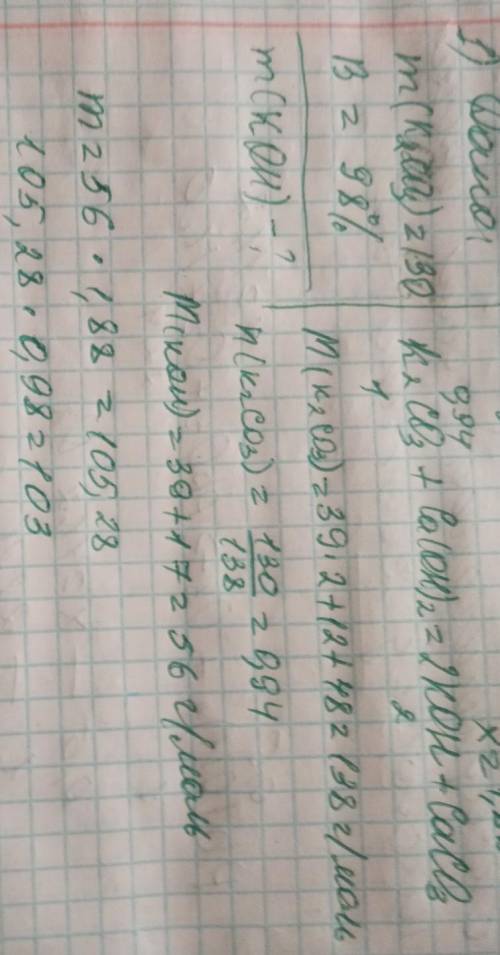 1) Дано:
m(K₂CO₃)=130
B = 98%
m(KOH) - ?
x=1,88
0,94
K₂CO₃ + Ca(OH)₂ = 2KOH + CaCO₃
1 2
M(K₂CO₃)=39·2+12+48=138 г/моль
n(K₂CO₃) = 130/138 = 0,94
M(KOH) = 39+17=56 г/моль
m=56·1,88=105,28
105,28·0,98=103